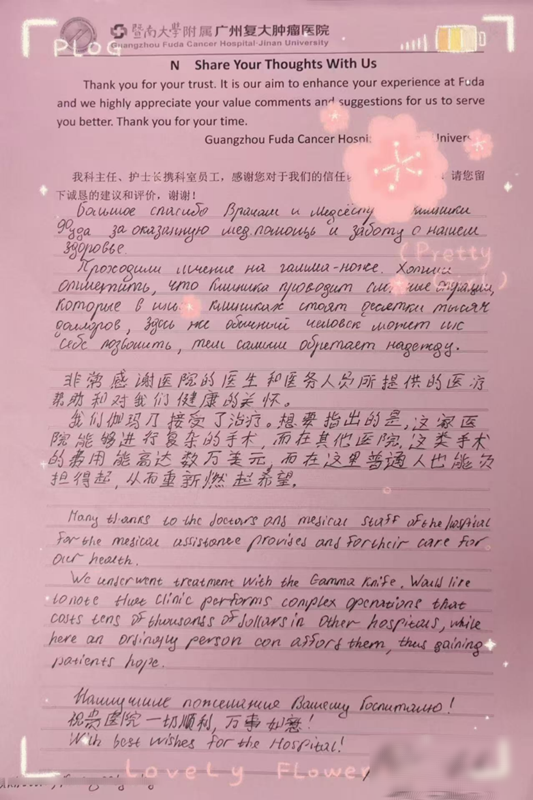 PLOG
暨南大學附属广州复大肿瘤医院
Guangzhou Fuda Cancer Hospital·Jinan University
N Share Your Thoughts With Us
Thank you for your trust. It is our aim to enhance your experience at Fuda
and we highly appreciate your value comments and suggestions for us to serve
you better. Thank you for your time.
Guangzhou Fuda Cancer
我科主任、护士长携科室员工，感谢您对于我们的信任 请您留
下诚恳的建议和评价，谢谢！
Большое спасибо Врачам и клиники
Фуда за оказанную мед.помощь и заботу о нашем
здоровье.
(Pretty
Проходили лечение на гамма-ноже. Хотим
отметить, что клиника проводит
которые в клиниках стоят десятки тысяч
долларов, здесь же обычный человек может их
себе позволить, тем самым обретает надежду.
非常感谢医院的医生和医务人员所提供的医疗
帮助和对我们健康的关怀。
我们伽玛刀接受了治疗。想要指出的是，这家医
院能够进行复杂的手术，而在其他医院，这类手术
的费用能高达数万美元，而在这里普通人也能负
担得起，从而重新燃起希望。
Many thanks to the doctors and medical staff of the hospital
for the medical assistance provided and for their care for
our health.
We underwent treatment with the Gamma Knife. Would like
to note that clinic performs complex operations that
costs tens of thousands of dollars in other hospitals, while
here an ordinary person can afford them, thus gaining
patients hope.
Наилучшие пожелания Вашему Госпиталю!
祝贵医院一切顺利，万事如意！
With best wishes for the Hospital!
Lovely Flower